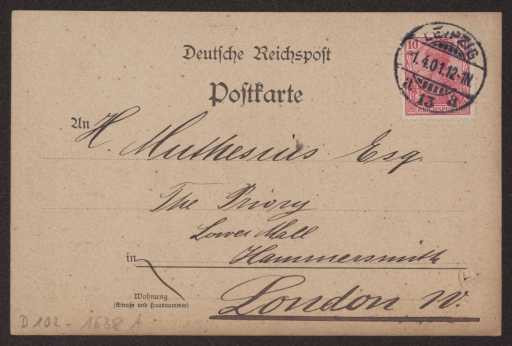 Deutsche Reichspost
Postkarte
10
LEIPZIG
1.4.01.12-1N
a 13 a
An H. Muthesius Esq
The Priory
Lower Mall
in Hammersmith
Wohnung
(Straße und Hausnummer)
London W.
D 102 - 1638 A